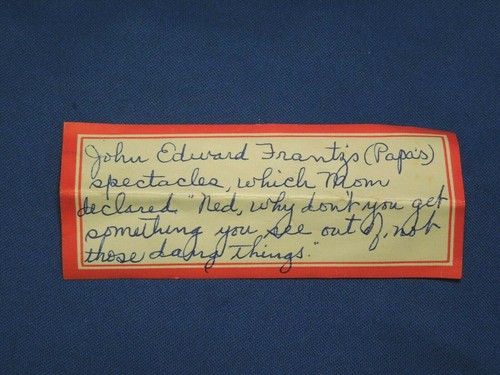 John Edward Frantz's (Papa's)
spectacles, which Mom
declared "Ned, why don't you get
something you see out of, not
those dang things."